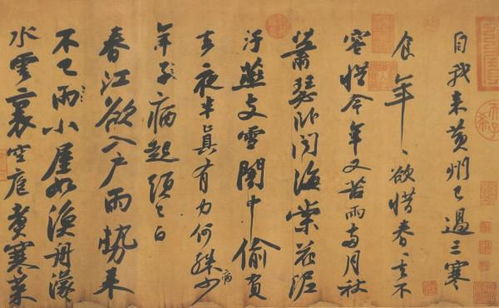 自我來黃州已過三寒
食年〻欲惜春〻去不
容惜今年又苦雨兩月秋
蕭瑟卧聞海棠花泥
汙燕支雪闇中偷負
去夜半真有力何殊病少
年子病起須已白
春江欲入戶雨勢來
不已雨小屋如漁舟濛〻
水雲裏空庖煮寒菜